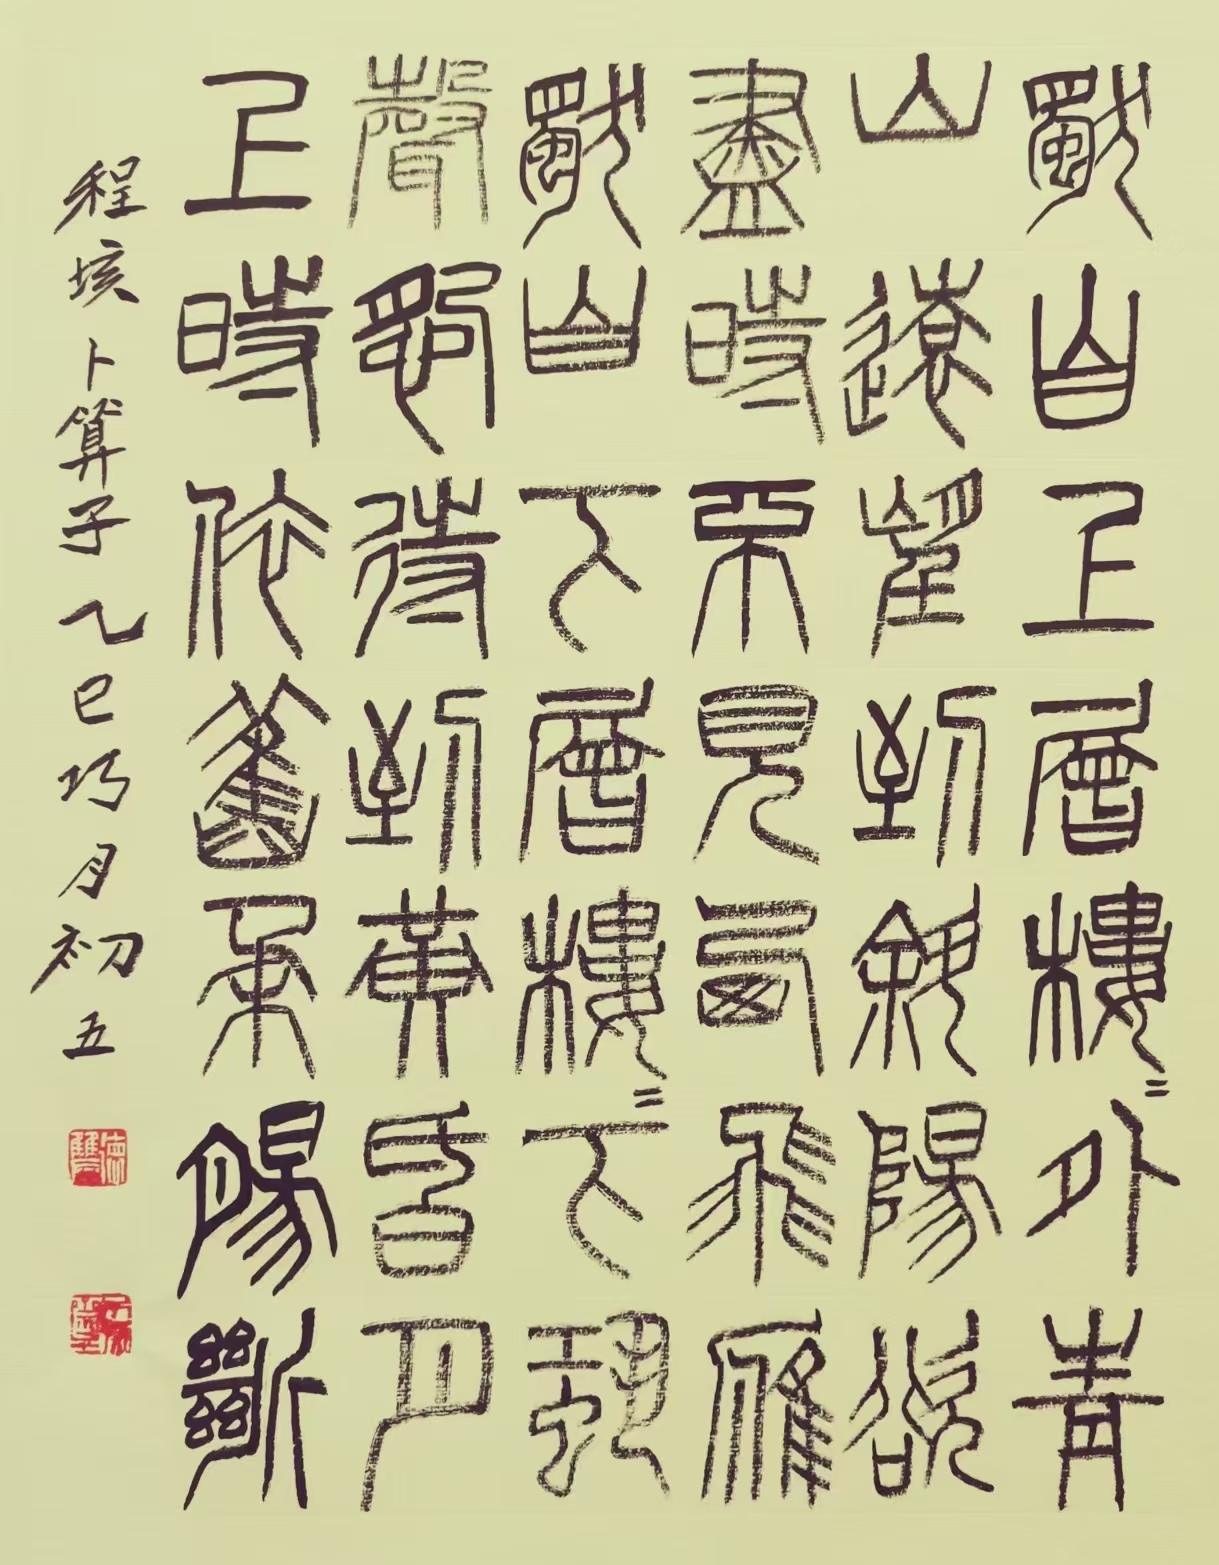 獨自上層樓〻外青
山遠望到斜陽欲
盡時不見西飛雁
獨自下層樓〻下蛩
聲怨待到黃昏月
上時依舊柔腸斷
程垓卜算子乙巳巧月初五